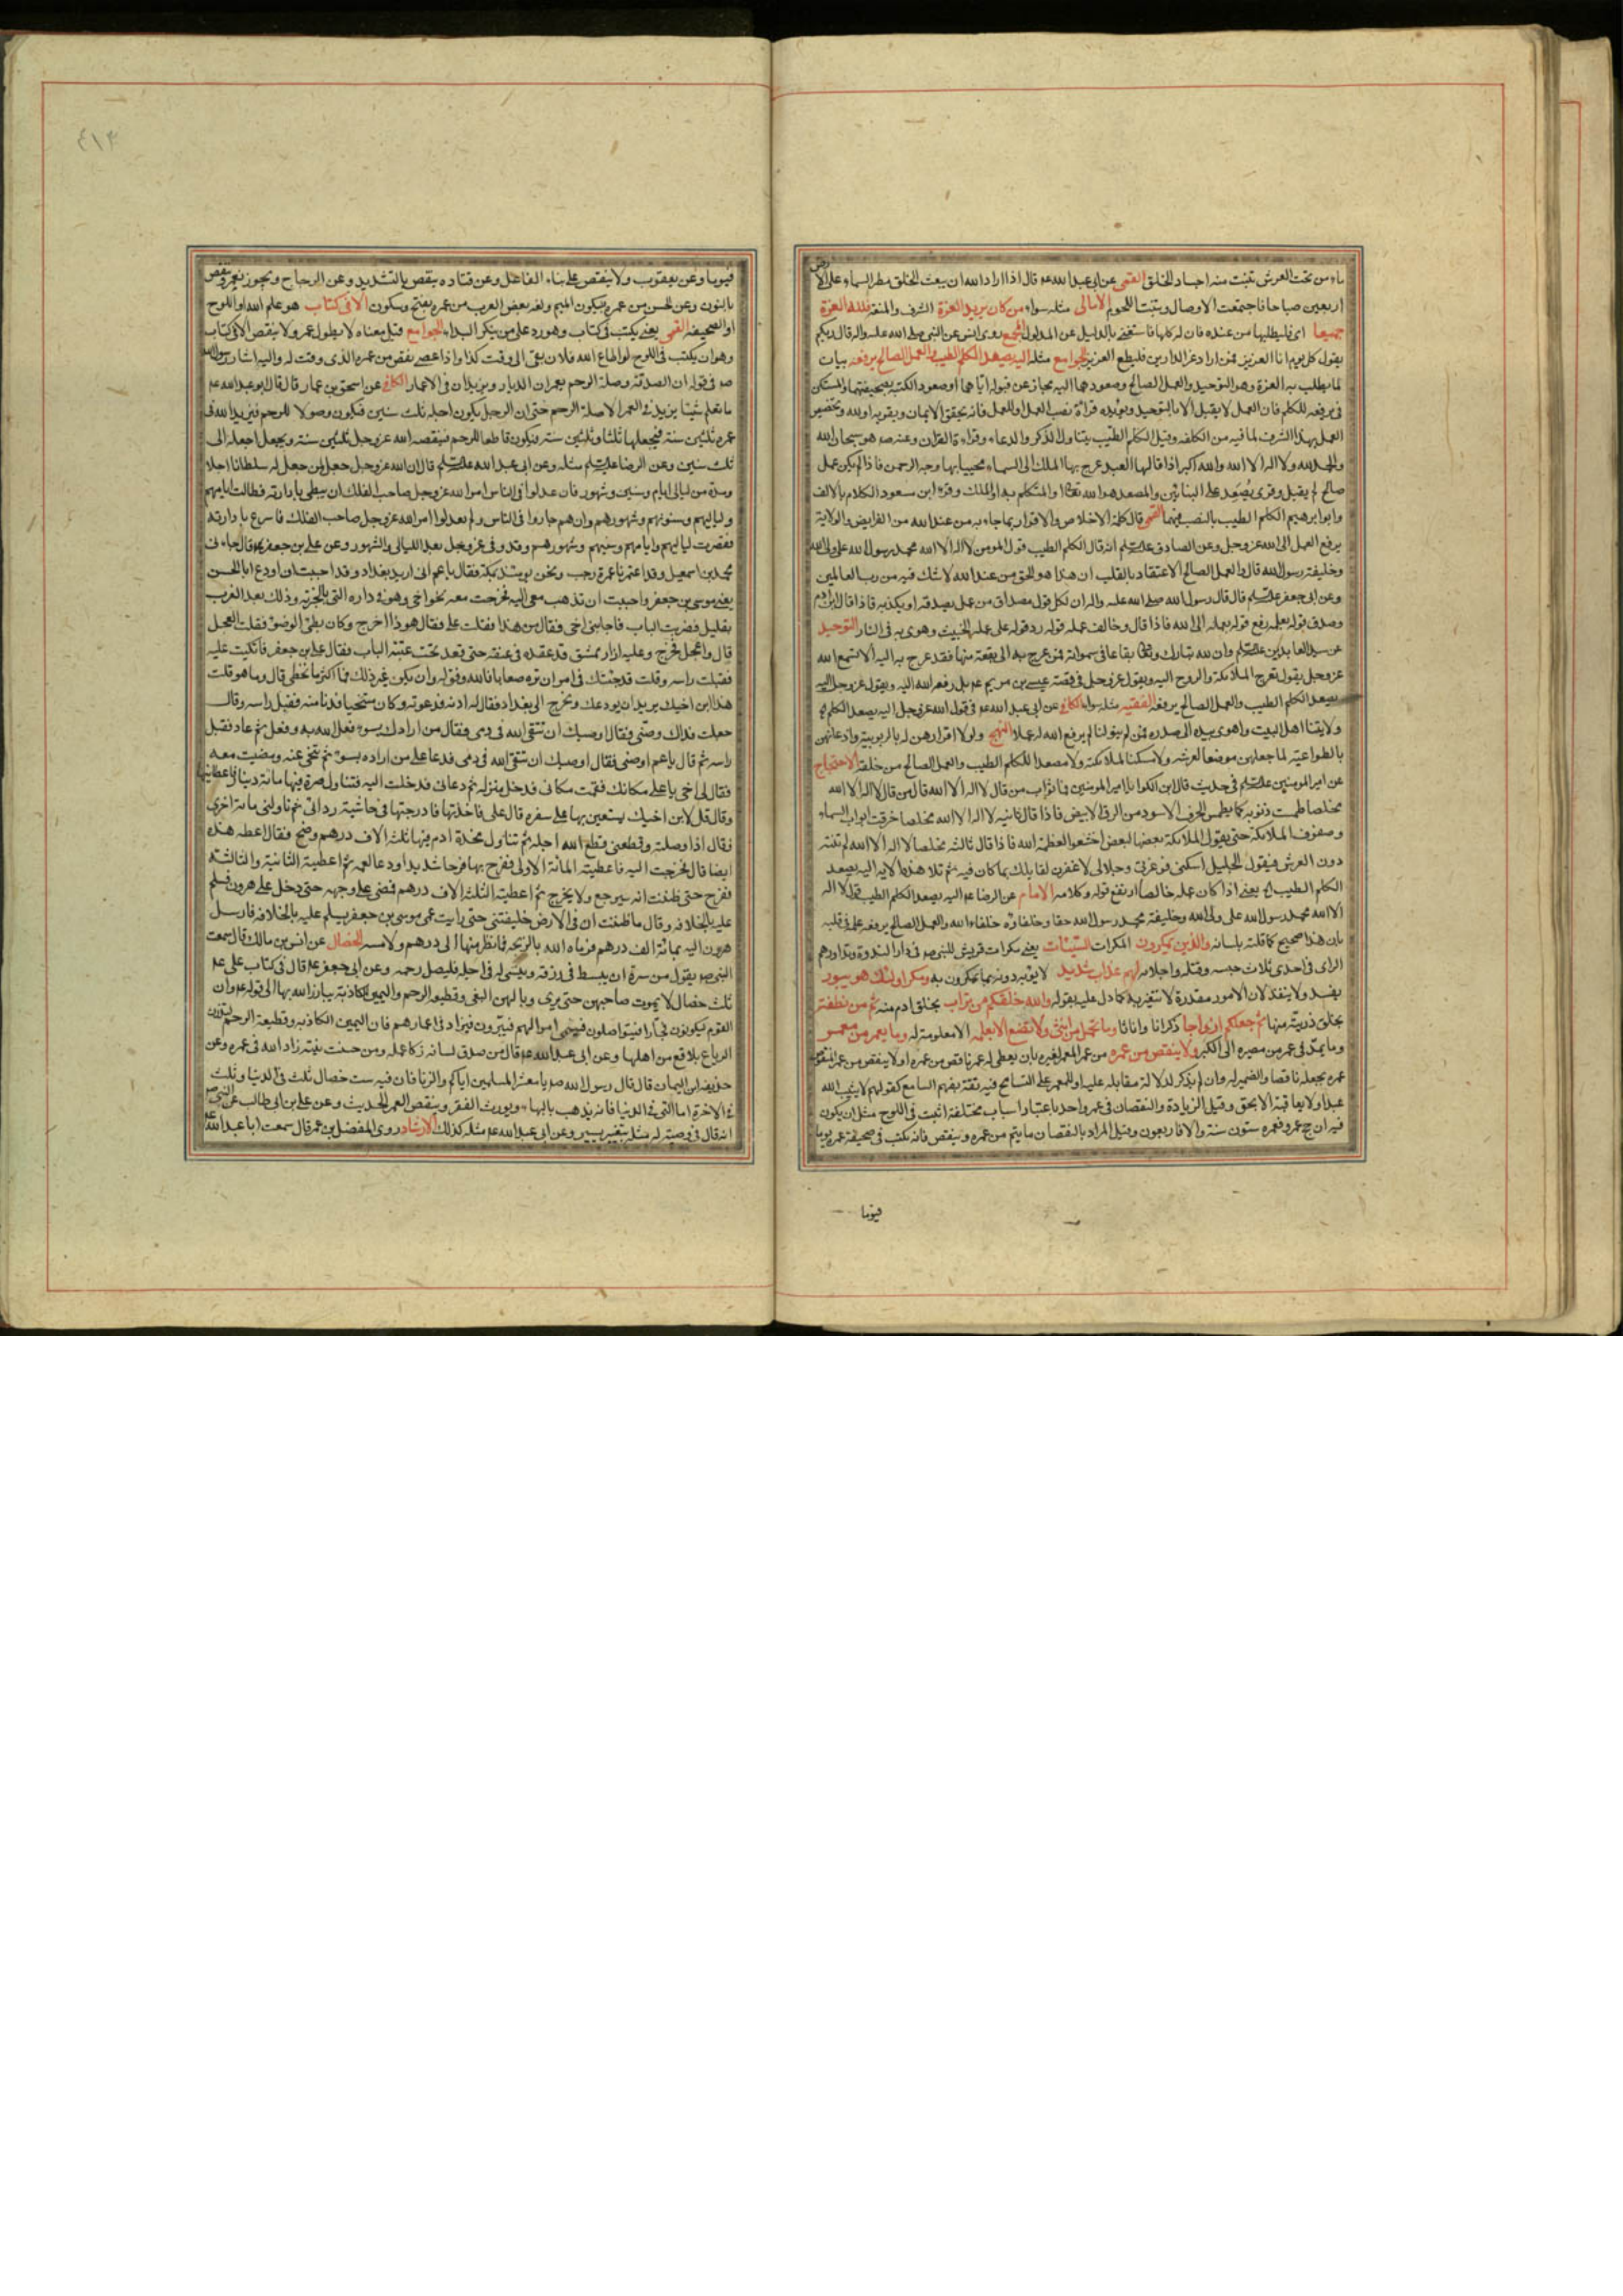 ماء من تحت العرش تنبت منه اجساد الخلق القمى عن ابى عبد الله عم قال اذا اراد الله ان يبعث الخلق مطر السماء على الارض
اربعين صباحا فاجتمعت الاوصال ونبتت اللحوم الامالى مثله سواء من كان يريد العزة الشرف والمنعة فلله العزة
جميعا اى فليطلبها من عنده فان له كلها فاستغنى بالدليل عن المدلول المجمع روى انس عن النبى صلى الله عليه واله قال ربكم
يقول كل يوم انا العزيز فمن اراد عز الدارين فليطع العزيز الجوامع مثله اليه يصعد الكلم الطيب والعمل الصالح يرفعه بيان
لما يطلب به العزة وهو التوحيد والعمل الصالح وصعودهما اليه مجاز عن قبوله اياهما او صعود الكتبة بصحيفتهما والمستكن
فى يرفعه للكلم فان العمل لا يقبل الا بالتوحيد ويؤيده قراءة نصب العمل او للعمل فانه يحقق الايمان ويقويه او لله وتخصيص
العمل بهذا الشرف لما فيه من الكلفه وقيل الكلم الطيب يتناول الذكر والدعاء وقراءة القران وعنه صم هو سبحان الله
والحمد لله ولا اله الا الله والله اكبر اذا قالها العبد عرج بها الملك الى السماء فحيى بها وجه الرحمن فاذا لم يكن عمل
صالح لم يقبل وقرئ يُصعَد على البنائين والمصعد هو الله تعالى او المتكلم به او الملك وقرء ابن مسعود الكلام بالالف
وابو ابرهيم الكلام الطيب بالنصب فيهما القمى قال كلمة الاخلاص والاقرار بما جاء به من عند الله من الفرايض والولاية
يرفع العمل الى الله عز وجل وعن الصادق عليه السلم انه قال الكلم الطيب قول المومن لا اله الا الله محمد رسول الله على ولى الله
وخليفة رسول الله قال والعمل الصالح الاعتقاد بالقلب ان هذا هو الحق من عند الله لا شك فيه من رب العالمين
وعن ابى جعفر عليه السلم قال قال رسول الله صلى الله عليه واله ان لكل قول مصداق من عمل يصدقه او يكذبه فاذا قال ابن ادم
وصدق قوله بعمله رفع قوله بعمله الى الله فاذا قال وخالف عمله قوله رد قوله على عمله الخبيث وهوى به فى النار التوحيد
عن سيد العابدين عليه السلم وان لله تبارك وتعالى بقاعا فى سمواته فمن عرج به الى بقعة منها فقد عرج به اليه الا تسمع الله
عز وجل يقول تعرج الملائكة والروح اليه ويقول عز وجل فى قصة عيسى بن مريم عم بل رفعه الله اليه ويقول عز وجل اليه
يصعد الكلم الطيب والعمل الصالح يرفعه الفقيه مثله سواء الكافى عن ابى عبد الله عم فى قول الله عز وجل اليه يصعد الكلم الخ
ولايتنا اهل البيت واهوى بيده الى صدره فمن لم يتولنا لم يرفع الله له عملا النهج ولولا اقرارهن له بالربوبية واذعانهن
بالطواعية لما جعلهن موضعا لعرشه ولا مسكنا لملائكته ولا مصعدا للكلم الطيب والعمل الصالح من خلقه الاحتجاج
عن امير المومنين عليه السلم فى حديث قال ابن الكوا يا امير المومنين فما ثواب من قال لا اله الا الله قال من قال لا اله الا الله
مخلصا طمست ذنوبه كما يطمس الحرف الاسود من الرق الابيض فاذا قال ثانية لا اله الا الله مخلصا خرقت ابواب السماء
وصفوف الملائكة حتى يقول الملائكة بعضها لبعض اخشعوا لعظمة الله فاذا قال ثالثة مخلصا لا اله الا الله لم تنته
دون العرش فيقول الجليل اسكنى فوعزتى وجلالى لاغفرن لقائلك بما كان فيه ثم تلا هذه الاية اليه يصعد
الكلم الطيب الخ يعنى اذا كان عمله خالصا ارتفع قوله وكلامه الامام عن الرضا عم اليه يصعد الكلم الطيب قول لا اله
الا الله محمد رسول الله على ولى الله وخليفة محمد رسول الله حقا وخلفاؤه خلفاء الله والعمل الصالح يرفعه علمه فى قلبه
بان هذا صحيح كما قلته بلسانه والذين يمكرون المكرات السيئات يعنى مكرات قريش للنبى صم فى دار الندوة وتداورهم
الراى فى احدى ثلاث حبسه وقتله واجلائه لهم عذاب شديد لا يؤبه دونه بما يمكرون به ومكر اولئك هو يبور
يفسد ولا ينفذ لان الامور مقدرة لا تتغير به كما دل عليه بقوله والله خلقكم من تراب بخلق ادم منه ثم من نطفة
بخلق ذريته منها ثم جعلكم ازواجا ذكرانا واناثا وما تحمل من انثى ولا تضع الا بعلمه الا معلومة له وما يعمر من معمر
وما يمد فى عمر من مصيره الى الكبر ولا ينقص من عمره من عمر المعمر لغيره بان يعطى له عمر ناقص من عمره او لا ينقص من عمر المنقوص
عمره بجعله ناقصا والضمير له وان لم يذكر لدلالة مقابله عليه او للمعمر على التسامح فيه ثقة بفهم السامع كقولهم لا يثيب الله
عبدا ولا يعاقبه الا بحق وقيل الزيادة والنقصان فى عمر واحد باعتبار اسباب مختلفة اثبتت فى اللوح مثل ان يكون
فيه ان حج عمرو فعمره ستون سنة والا فاربعون وقيل المراد بالنقصان ما يتم من عمره وينقص فانه يكتب فى صحيفة عمره يوما
فيوما
٤١٣
فيوما وعن يعقوب ولا ينقص على بناء الفاعل وعن قتاده ينقص بالتشديد وعن الزجاج ويجوز نعمر وننقص
بالنون وعن الحسن من عمره بسكون الميم ولغه بعض العرب من عمره بفتح وسكون الا فى كتاب هو علم الله او اللوح
او الصحيفه القمى يعنى يكتب فى كتاب وهو رد على من ينكر البداء الجوامع قيل معناه لا يطول عمر ولا ينقص الا فى كتاب
وهو ان يكتب فى اللوح لو اطاع الله فلان بقى الى وقت كذا واذا عصى نقص من عمره الذى وقت له واليه اشار رسول الله
صم فى قوله ان الصدقة وصلة الرحم يعمران الديار ويزيدان فى الاعمار الكافى عن اسحق بن عمار قال قال ابو عبد الله عم
ما نعلم شيئا يزيد فى العمر الا صلة الرحم حتى ان الرجل يكون اجله ثلث سنين فيكون وصولا للرحم فيزيد الله فى
عمره ثلثين سنة فيجعلها ثلثا وثلثين سنة ويكون قاطعا للرحم فينقصه الله عز وجل ثلثين سنة ويجعل اجله الى
ثلث سنين وعن الرضا عليه السلم مثله وعن ابى عبد الله عليه السلم قال ان الله عز وجل جعل لمن جعل له سلطانا اجلا
ومدة من ليالى وايام وسنين وشهور فان عدلوا فى الناس امر الله عز وجل صاحب الفلك ان يبطى بادارته فطالت ايامهم
ولياليهم وسنونهم وشهورهم وان هم جاروا فى الناس ولم يعدلوا امر الله عز وجل صاحب الفلك فاسرع بادارته
فقصرت لياليهم وايامهم وسنيهم وشهورهم وقد وفى عز وجل بعدد الليالى والشهور وعن على بن جعفر قال جاءنى
محمد بن اسمعيل وقد اعتمرنا عمرة رجب ونحن يومئذ بمكة فقال يا عم انى اريد بغداد وقد احببت ان اودع ابا الحسن
يعنى موسى بن جعفر واحببت ان تذهب معى اليه فخرجت معه نحو اخى وهو فى داره التى بالحوبة وذلك بعد المغرب
بقليل فضربت الباب فاجابنى اخى فقال من هذا فقلت على فقال هو ذا اخرج وكان بطئ الوضوء فقلت العجل
قال واعجل فخرج وعليه ازار ممشق قد عقده فى عنقه حتى قعد تحت عتبة الباب فقال على بن جعفر فانكببت عليه
فقبلت راسه وقلت قد جئتك فى امر ان تره صوابا فالله وفق له وان يكون غير ذلك فما اكثر ما نخطى قال وما هو قلت
هذا ابن اخيك يريد ان يودعك ويخرج الى بغداد فقال لى ادنه فدعوته وكان متنحيا فدنا منه فقبل راسه وقال
جعلت فداك اوصنى فقال اوصيك ان تتقى الله فى دمى فقال من ارادك بسوء فعل الله به وفعل ثم عاد فقبل
راسه ثم قال يا عم اوصنى فقال اوصيك ان تتقى الله فى دمى فدعا على من اراده بسوء ثم تنحى عنه ومضيت معه
فقال لى اخى يا على مكانك فقمت مكانى فدخل منزله ثم دعانى فدخلت اليه فتناول صرة فيها مائة دينار فاعطانيها
وقال قل لابن اخيك يستعين بها على سفره قال على فاخذتها فادرجتها فى حاشية ردائى ثم ناولنى مائة اخرى
فقال اذا وصلته وقطعنى قطع الله اجله ثم تناول مخدة ادم فيها ثلث الاف درهم وضح فقال اعطه هذه
ايضا قال فخرجت اليه فاعطيته المائة الاولى ففرح بها فرحا شديدا ودعا لعمه ثم اعطيته الثانية والثالثة
ففرح حتى ظننت انه سيرجع ولا يخرج ثم اعطيته الثلثة الاف درهم فمضى على وجهه حتى دخل على هرون فسلم
عليه بالخلافه وقال ما ظننت ان فى الارض خليفتين حتى رايت عمى موسى بن جعفر يسلم عليه بالخلافة فارسل
هرون اليه بمائة الف درهم فرماه الله بالذبحه فما نظر منها الى درهم ولا مسه الخصال عن انس بن مالك قال سمعت
النبى صم يقول من سره ان يبسط فى رزقه وينسى له فى اجله فليصل رحمه وعن ابى جعفر عم قال فى كتاب على عم
ثلث خصال لا يموت صاحبهن حتى يرى وبالهن البغى وقطيعة الرحم واليمين الكاذبة يبارز الله بها الى قوله عم وان
القوم ليكونون فجارا فيتواصلون فينمى اموالهم فيبرون فيزاد فى اعمارهم فان اليمين الكاذبه وقطيعة الرحم لتذران
الرباع بلاقع من اهلها وعن ابى عبد الله عم قال من صدق لسانه زكا عمله ومن حسنت نيته زاد الله فى عمره وعن
حذيفة بن اليمان قال قال رسول الله صم يا معشر المسلمين اياكم والزنا فان فيه ست خصال ثلث فى الدنيا وثلث
فى الاخرة اما التى فى الدنيا فانه يذهب بالبهاء ويورث الفقر وينقص العمر الحديث وعن على بن ابى طالب عن النبى صم
انه قال فى وصيته له مثله بتغيير يسير وعن ابى عبد الله عم مثله كذلك الارشاد روى المفضل بن عمر قال سمعت ابا عبد الله عم